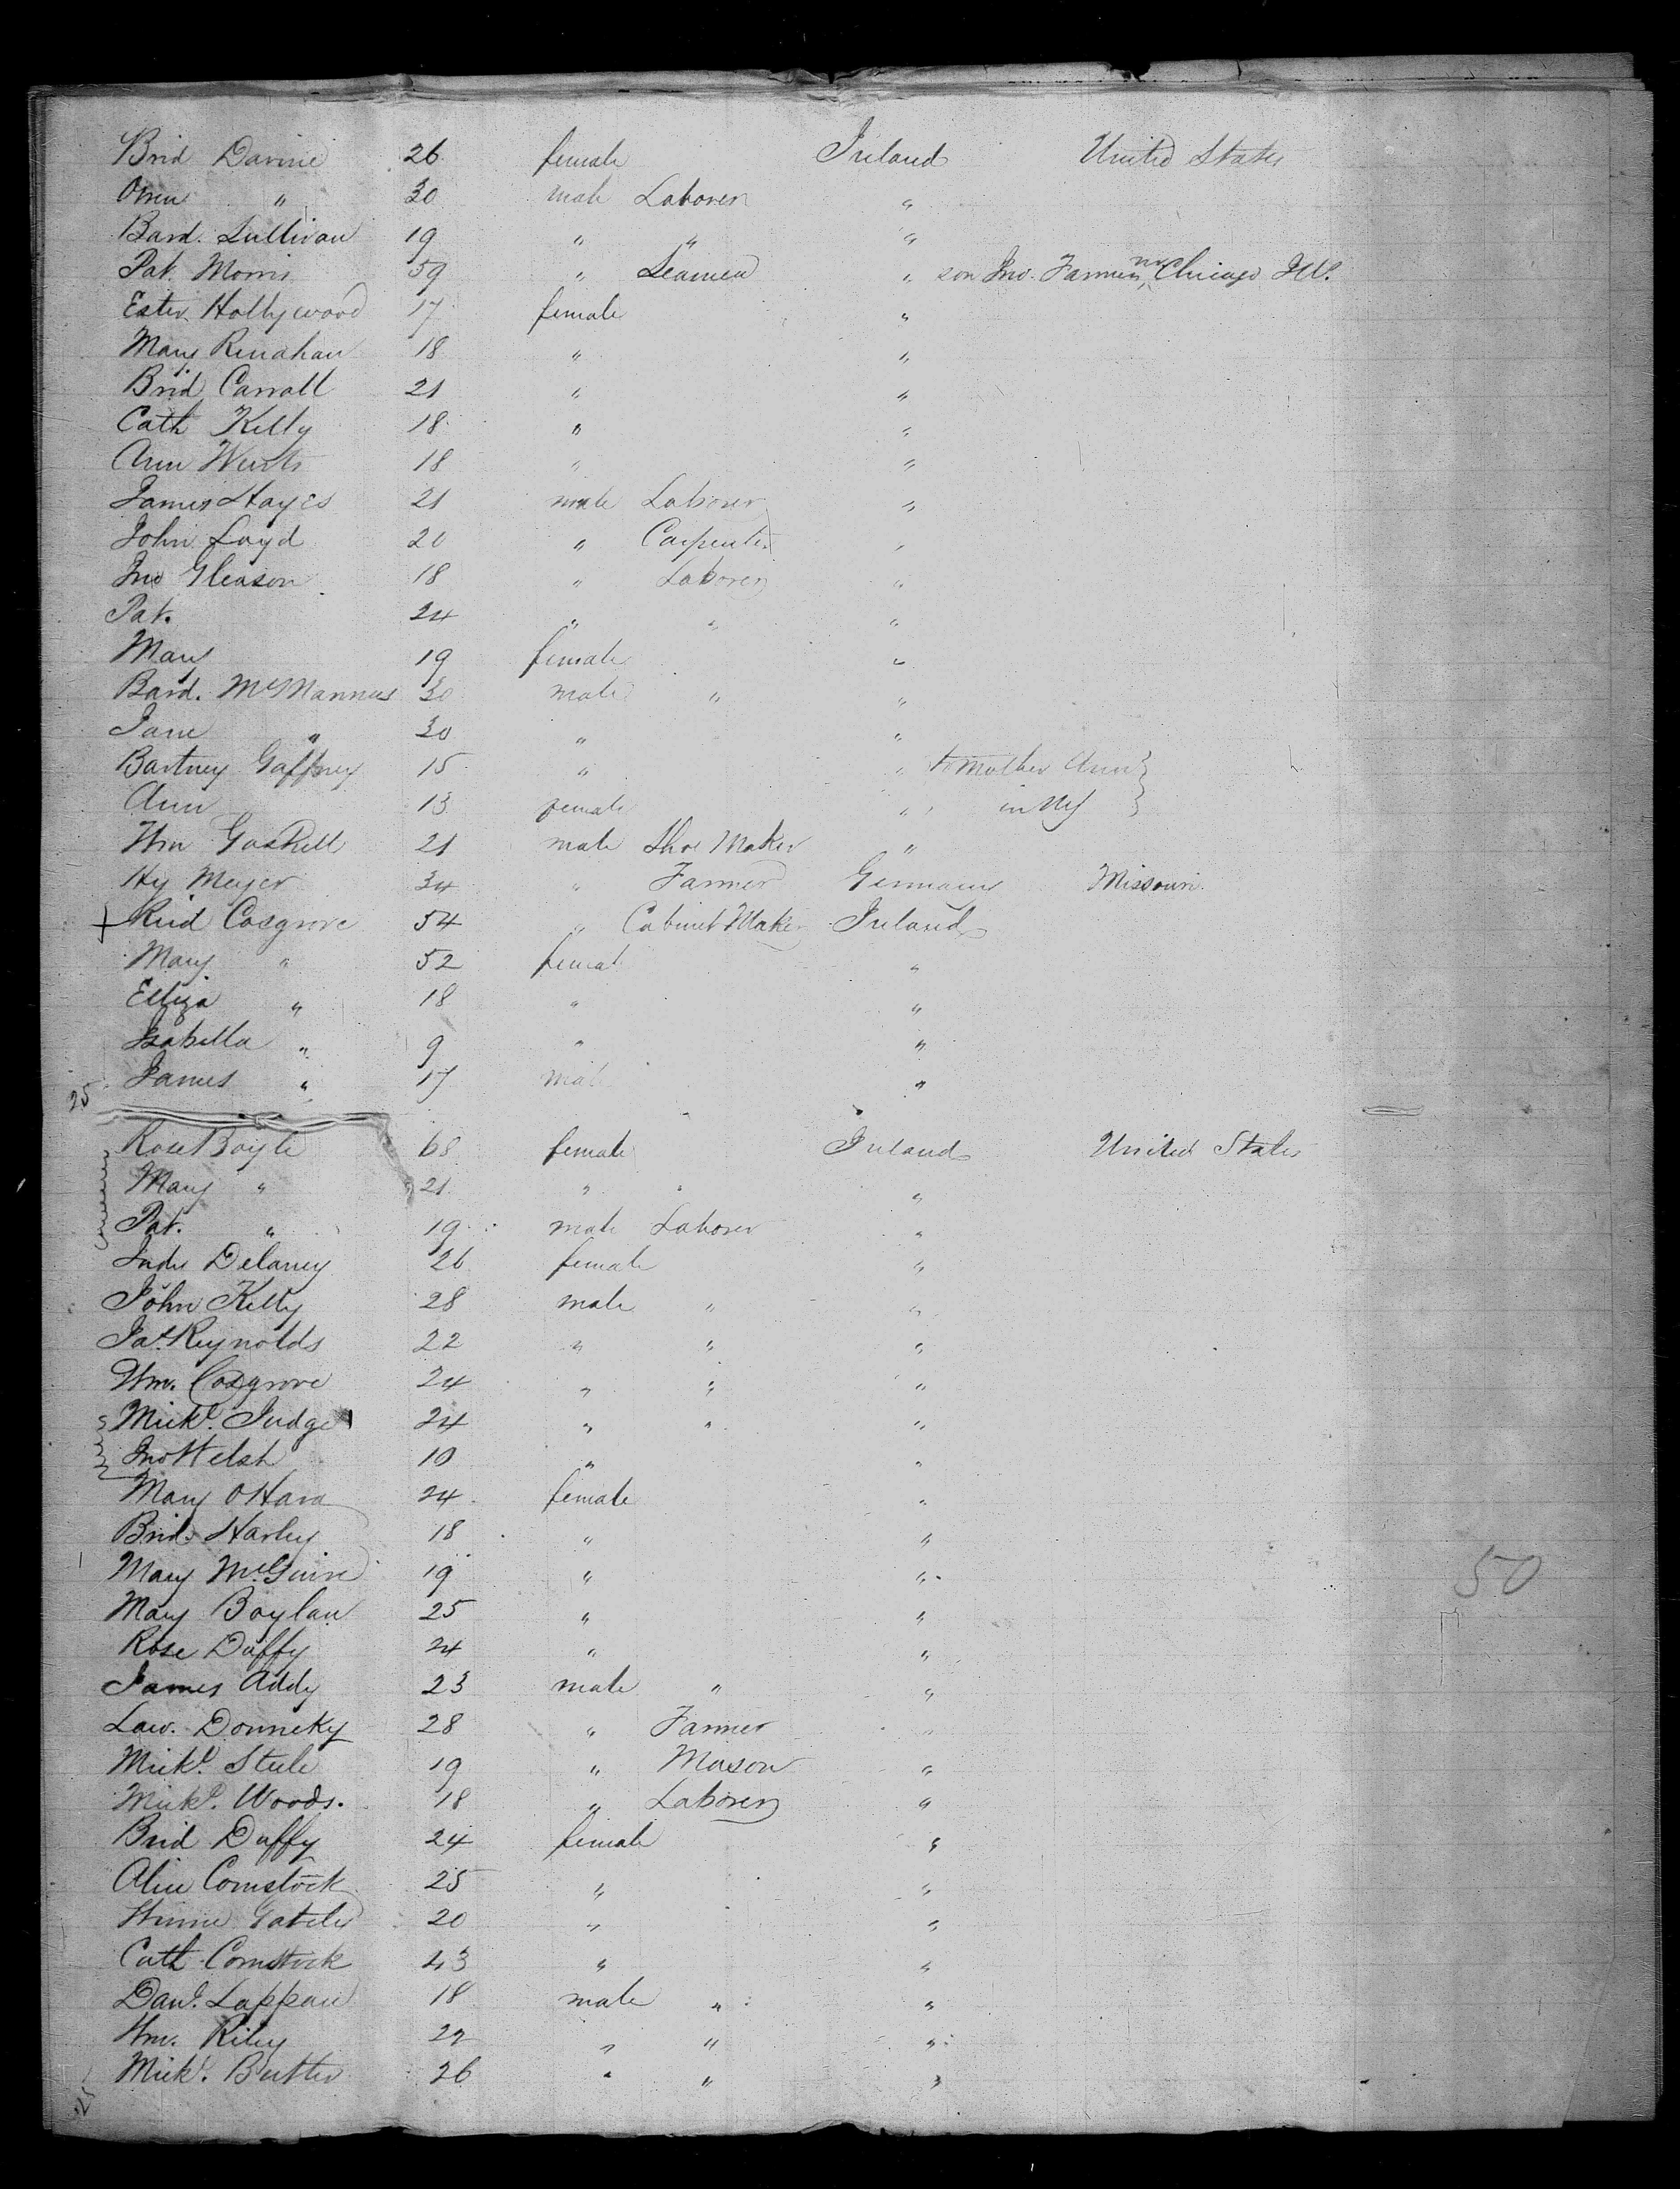 Brid Davine 26 female Ireland United States
Owen " 30 male Laborer "
Bard. Sullivan 19 " " "
Pat. Morris 59 " " son Jno. Farmer, Chicago Ill.
Ester Hollywood 17 female "
Mary Renahan 18 " "
Brid Carroll 21 " "
Cath Kelly 18 " "
Ann 18 " "
James Hayes 21 male Laborer "
John Loyd 20 " Carpenter "
Jno Gleason 18 " Laborer "
Pat. 24 " " "
Mary 19 female "
Bard. McMannus 30 male " "
Jane " 30 " "
Bartney Gaffney 15 " " to Mother Ann }
Ann 13 female " " in NY }
Wm Gaskell 21 male Shoe Maker "
Hy Meyer 34 " Farmer Germany Missouri.
Cosgrove 54 " Cabinet Maker Ireland
Mary " 52 female "
Elliza " 18 " "
Isabella " 9 " "
James " 17 male "
25
Rose Boyle 68 female Ireland United States
Mary " 21 " " "
Pat. " 19 male Laborer "
Delaney 26 female "
John Kelly 28 male " "
Jas. Reynolds 22 " " "
Wm. Cosgrove 24 " " "
Mickl. Judge 24 " " "
Jno Welsh 10 " "
Mary OHara 24 female "
Brid. Harley 18 " "
Mary McGuire 19 " "
Mary Boylan 25 " "
Rose Duffy 24 " "
James Addy 23 male " "
Law. Donneky 28 " Farmer "
Mickl. Steele 19 " Mason "
Mickl. Woods. 18 " Laborer "
Brid Duffy 24 female "
Alice Comstock 25 " "
Winnie 20 " "
Cath Comstock 43 " "
Danl. Lappan 18 male " "
Wm. Riley 22 " " "
Mickl. Butler 26 " " "
25
50